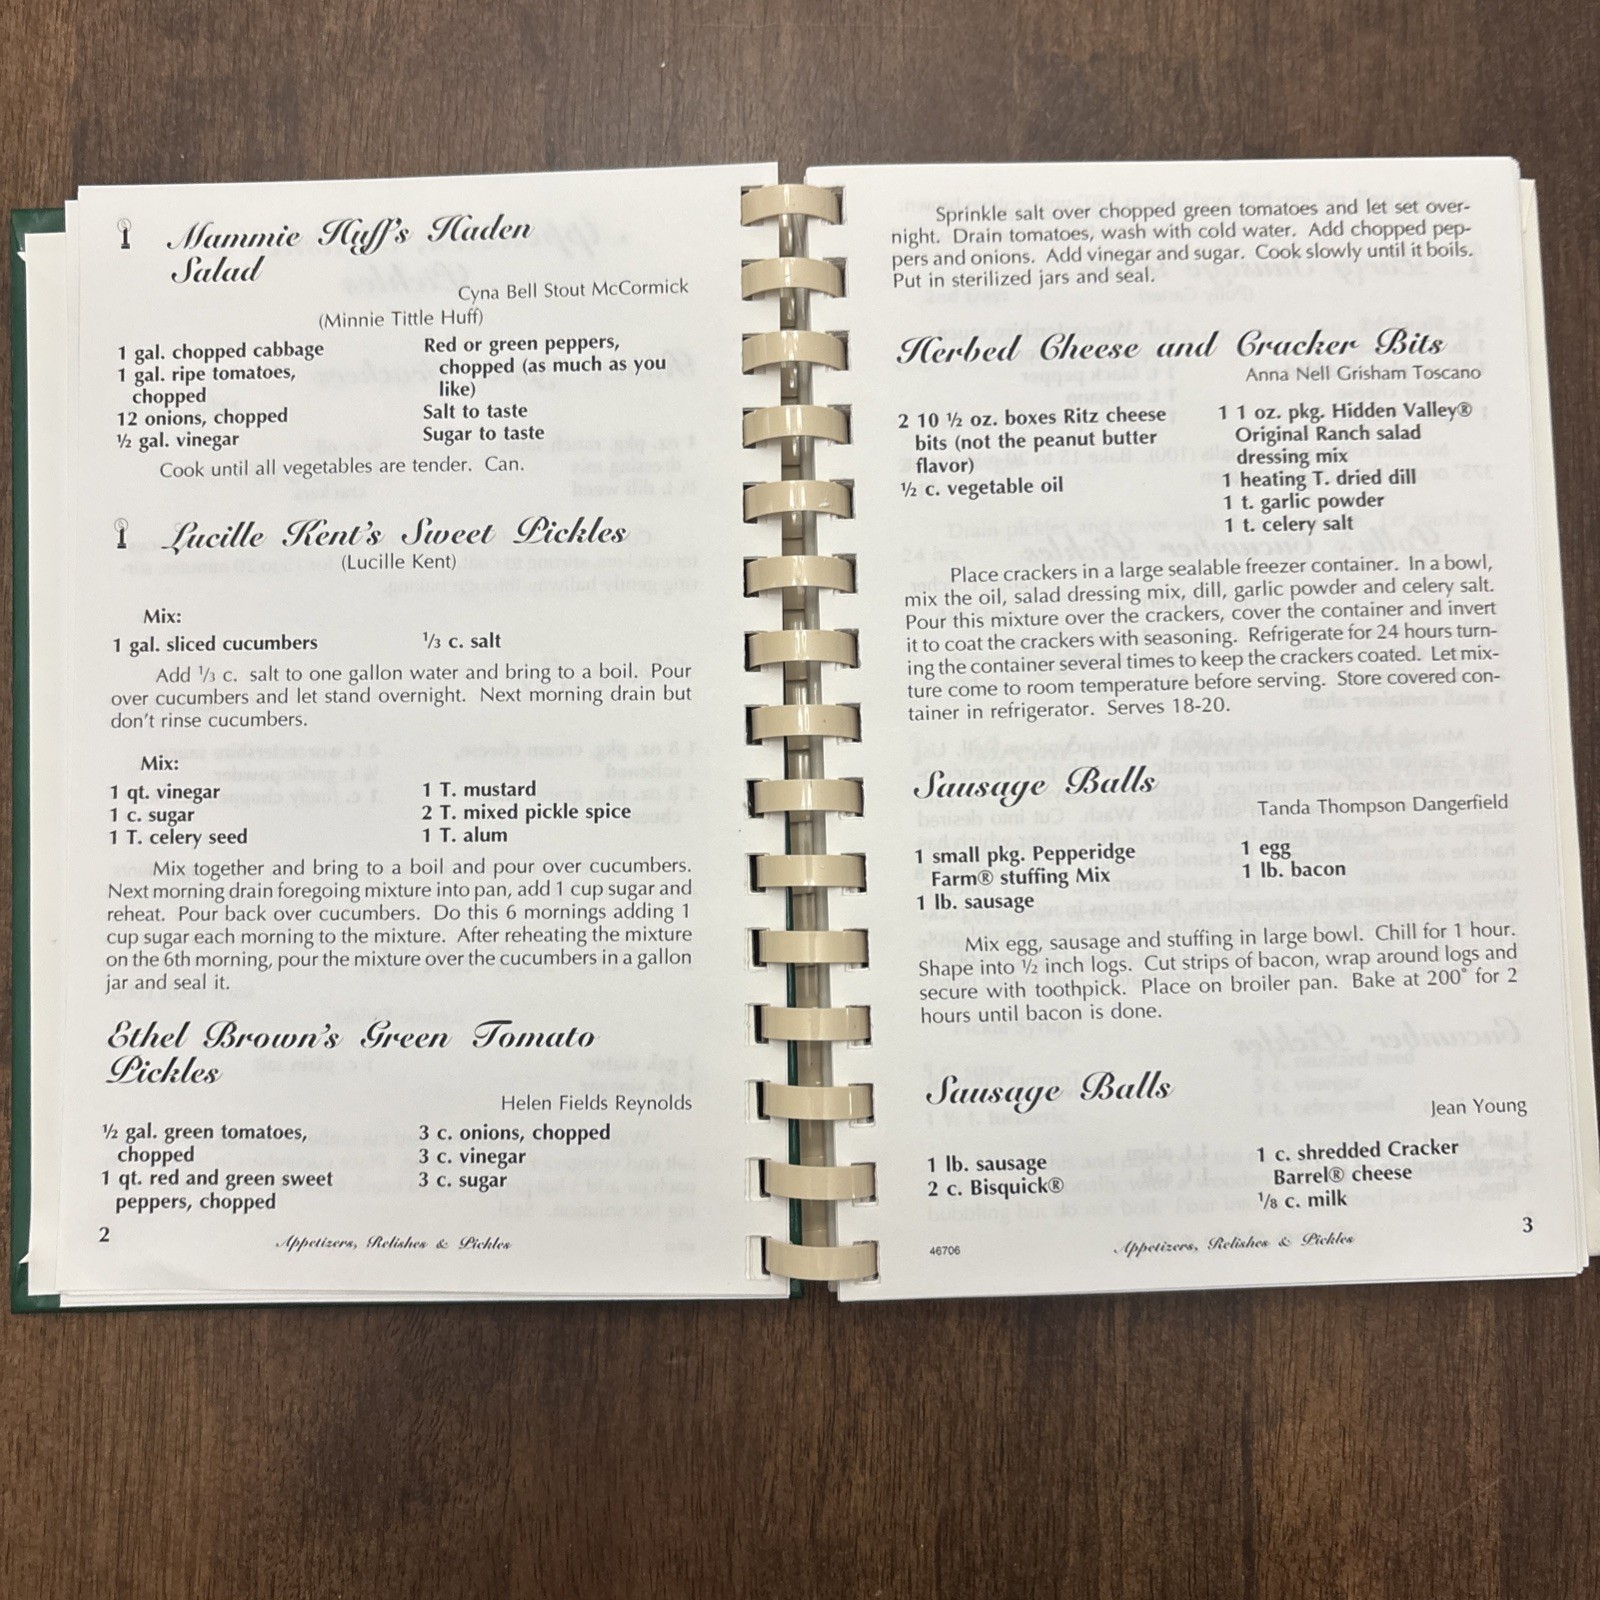 Mammie Huff's Haden
Salad
Cyna Bell Stout McCormick
(Minnie Tittle Huff)
1 gal. chopped cabbage
1 gal. ripe tomatoes,
chopped
12 onions, chopped
½ gal. vinegar
Red or green peppers,
chopped (as much as you
like)
Salt to taste
Sugar to taste
Cook until all vegetables are tender. Can.
Lucille Kent's Sweet Pickles
(Lucille Kent)
Mix:
1 gal. sliced cucumbers
⅓ c. salt
Add ⅓ c. salt to one gallon water and bring to a boil. Pour
over cucumbers and let stand overnight. Next morning drain but
don't rinse cucumbers.
Mix:
1 qt. vinegar
1 c. sugar
1 T. celery seed
1 T. mustard
2 T. mixed pickle spice
1 T. alum
Mix together and bring to a boil and pour over cucumbers.
Next morning drain foregoing mixture into pan, add 1 cup sugar and
reheat. Pour back over cucumbers. Do this 6 mornings adding 1
cup sugar each morning to the mixture. After reheating the mixture
on the 6th morning, pour the mixture over the cucumbers in a gallon
jar and seal it.
Ethel Brown's Green Tomato
Pickles
Helen Fields Reynolds
½ gal. green tomatoes,
chopped
1 qt. red and green sweet
peppers, chopped
3 c. onions, chopped
3 c. vinegar
3 c. sugar
2
Appetizers, Relishes & Pickles
Sprinkle salt over chopped green tomatoes and let set over-
night. Drain tomatoes, wash with cold water. Add chopped pep-
pers and onions. Add vinegar and sugar. Cook slowly until it boils.
Put in sterilized jars and seal.
Herbed Cheese and Cracker Bits
Anna Nell Grisham Toscano
2 10 ½ oz. boxes Ritz cheese
bits (not the peanut butter
flavor)
½ c. vegetable oil
1 1 oz. pkg. Hidden Valley®
Original Ranch salad
dressing mix
1 heating T. dried dill
1 t. garlic powder
1 t. celery salt
Place crackers in a large sealable freezer container. In a bowl,
mix the oil, salad dressing mix, dill, garlic powder and celery salt.
Pour this mixture over the crackers, cover the container and invert
it to coat the crackers with seasoning. Refrigerate for 24 hours turn-
ing the container several times to keep the crackers coated. Let mix-
ture come to room temperature before serving. Store covered con-
tainer in refrigerator. Serves 18-20.
Sausage Balls
Tanda Thompson Dangerfield
1 small pkg. Pepperidge
Farm® stuffing Mix
1 lb. sausage
1 egg
1 lb. bacon
Mix egg, sausage and stuffing in large bowl. Chill for 1 hour.
Shape into ½ inch logs. Cut strips of bacon, wrap around logs and
secure with toothpick. Place on broiler pan. Bake at 200° for 2
hours until bacon is done.
Sausage Balls
Jean Young
1 lb. sausage
2 c. Bisquick®
1 c. shredded Cracker
Barrel® cheese
⅛ c. milk
46706
Appetizers, Relishes & Pickles
3